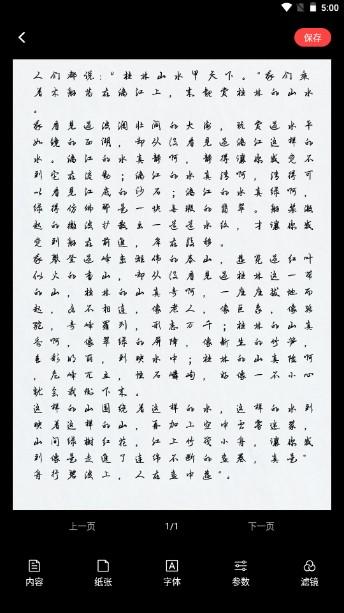 5:00
保存
人们都说:"桂林山水甲天下。"我们乘
着木船荡在漓江上,来观赏桂林的山水
。
我看见过波澜壮阔的大海,玩赏过水平
如镜的西湖,却从没看见过漓江这样的
水。漓江的水真静啊,静得让你感觉不
到它在流动;漓江的水真清啊,清得可
以看见江底的沙石;漓江的水真绿啊,
绿得仿佛那是一块无瑕的翡翠。船桨激
起的微波扩散出一道道水纹,才让你感
觉到船在前进,岸在后移。
我攀登过峰峦雄伟的泰山,游览过红叶
似火的香山,却从没看见过桂林这一带
的山,桂林的山真奇啊,一座座拔地而
起,各不相连,像老人,像巨象,像骆
驼,奇峰罗列,形态万千;桂林的山真
秀啊,像翠绿的屏障,像新生的竹笋,
色彩明丽,倒映水中;桂林的山真险啊
,危峰兀立,怪石嶙峋,好像一不小心
就会栽倒下来。
这样的山围绕着这样的水,这样的水倒
映着这样的山,再加上空中云雾迷蒙,
山间绿树红花,江上竹筏小舟,让你感
到像是走进了连绵不断的画卷,真是"
舟行碧波上,人在画中游"。
上一页 1/1 下一页
内容 纸张 字体 参数 滤镜